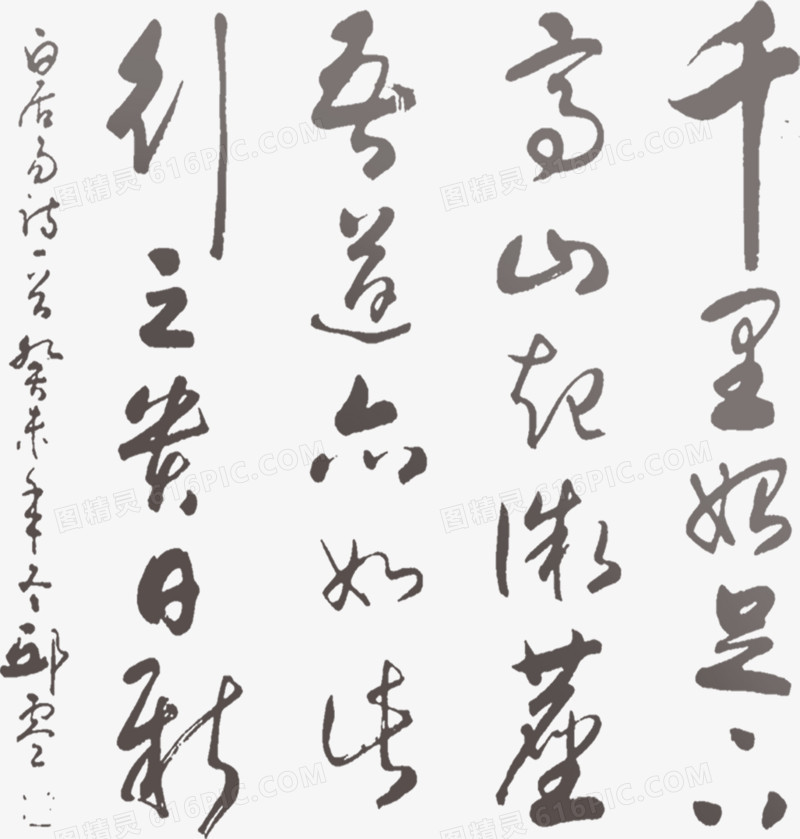 千里始足下
高山起微塵
吾道亦如此
行之貴日新
白居易詩一首癸未年冬
图精灵 616PIC.COM
图精灵 616PIC.COM
图精灵 616PIC.COM
图精灵 616PIC.COM
图精灵 616PIC.COM
图精灵 616PIC.COM